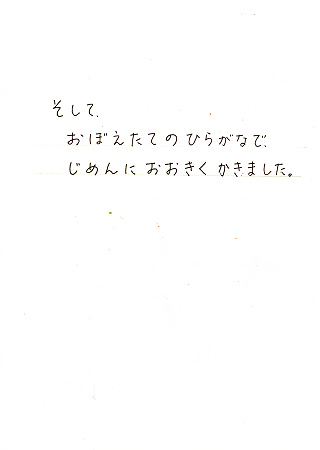 そして、
おぼえたての ひらがなで、
じめんに おおきく かきました。